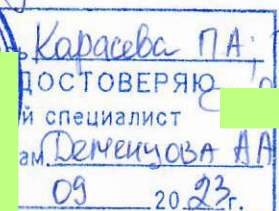 ь Карасева П А,
ДОСТОВЕРЯЮ
й специалист
ам Деменцова АА
09 20 23г.